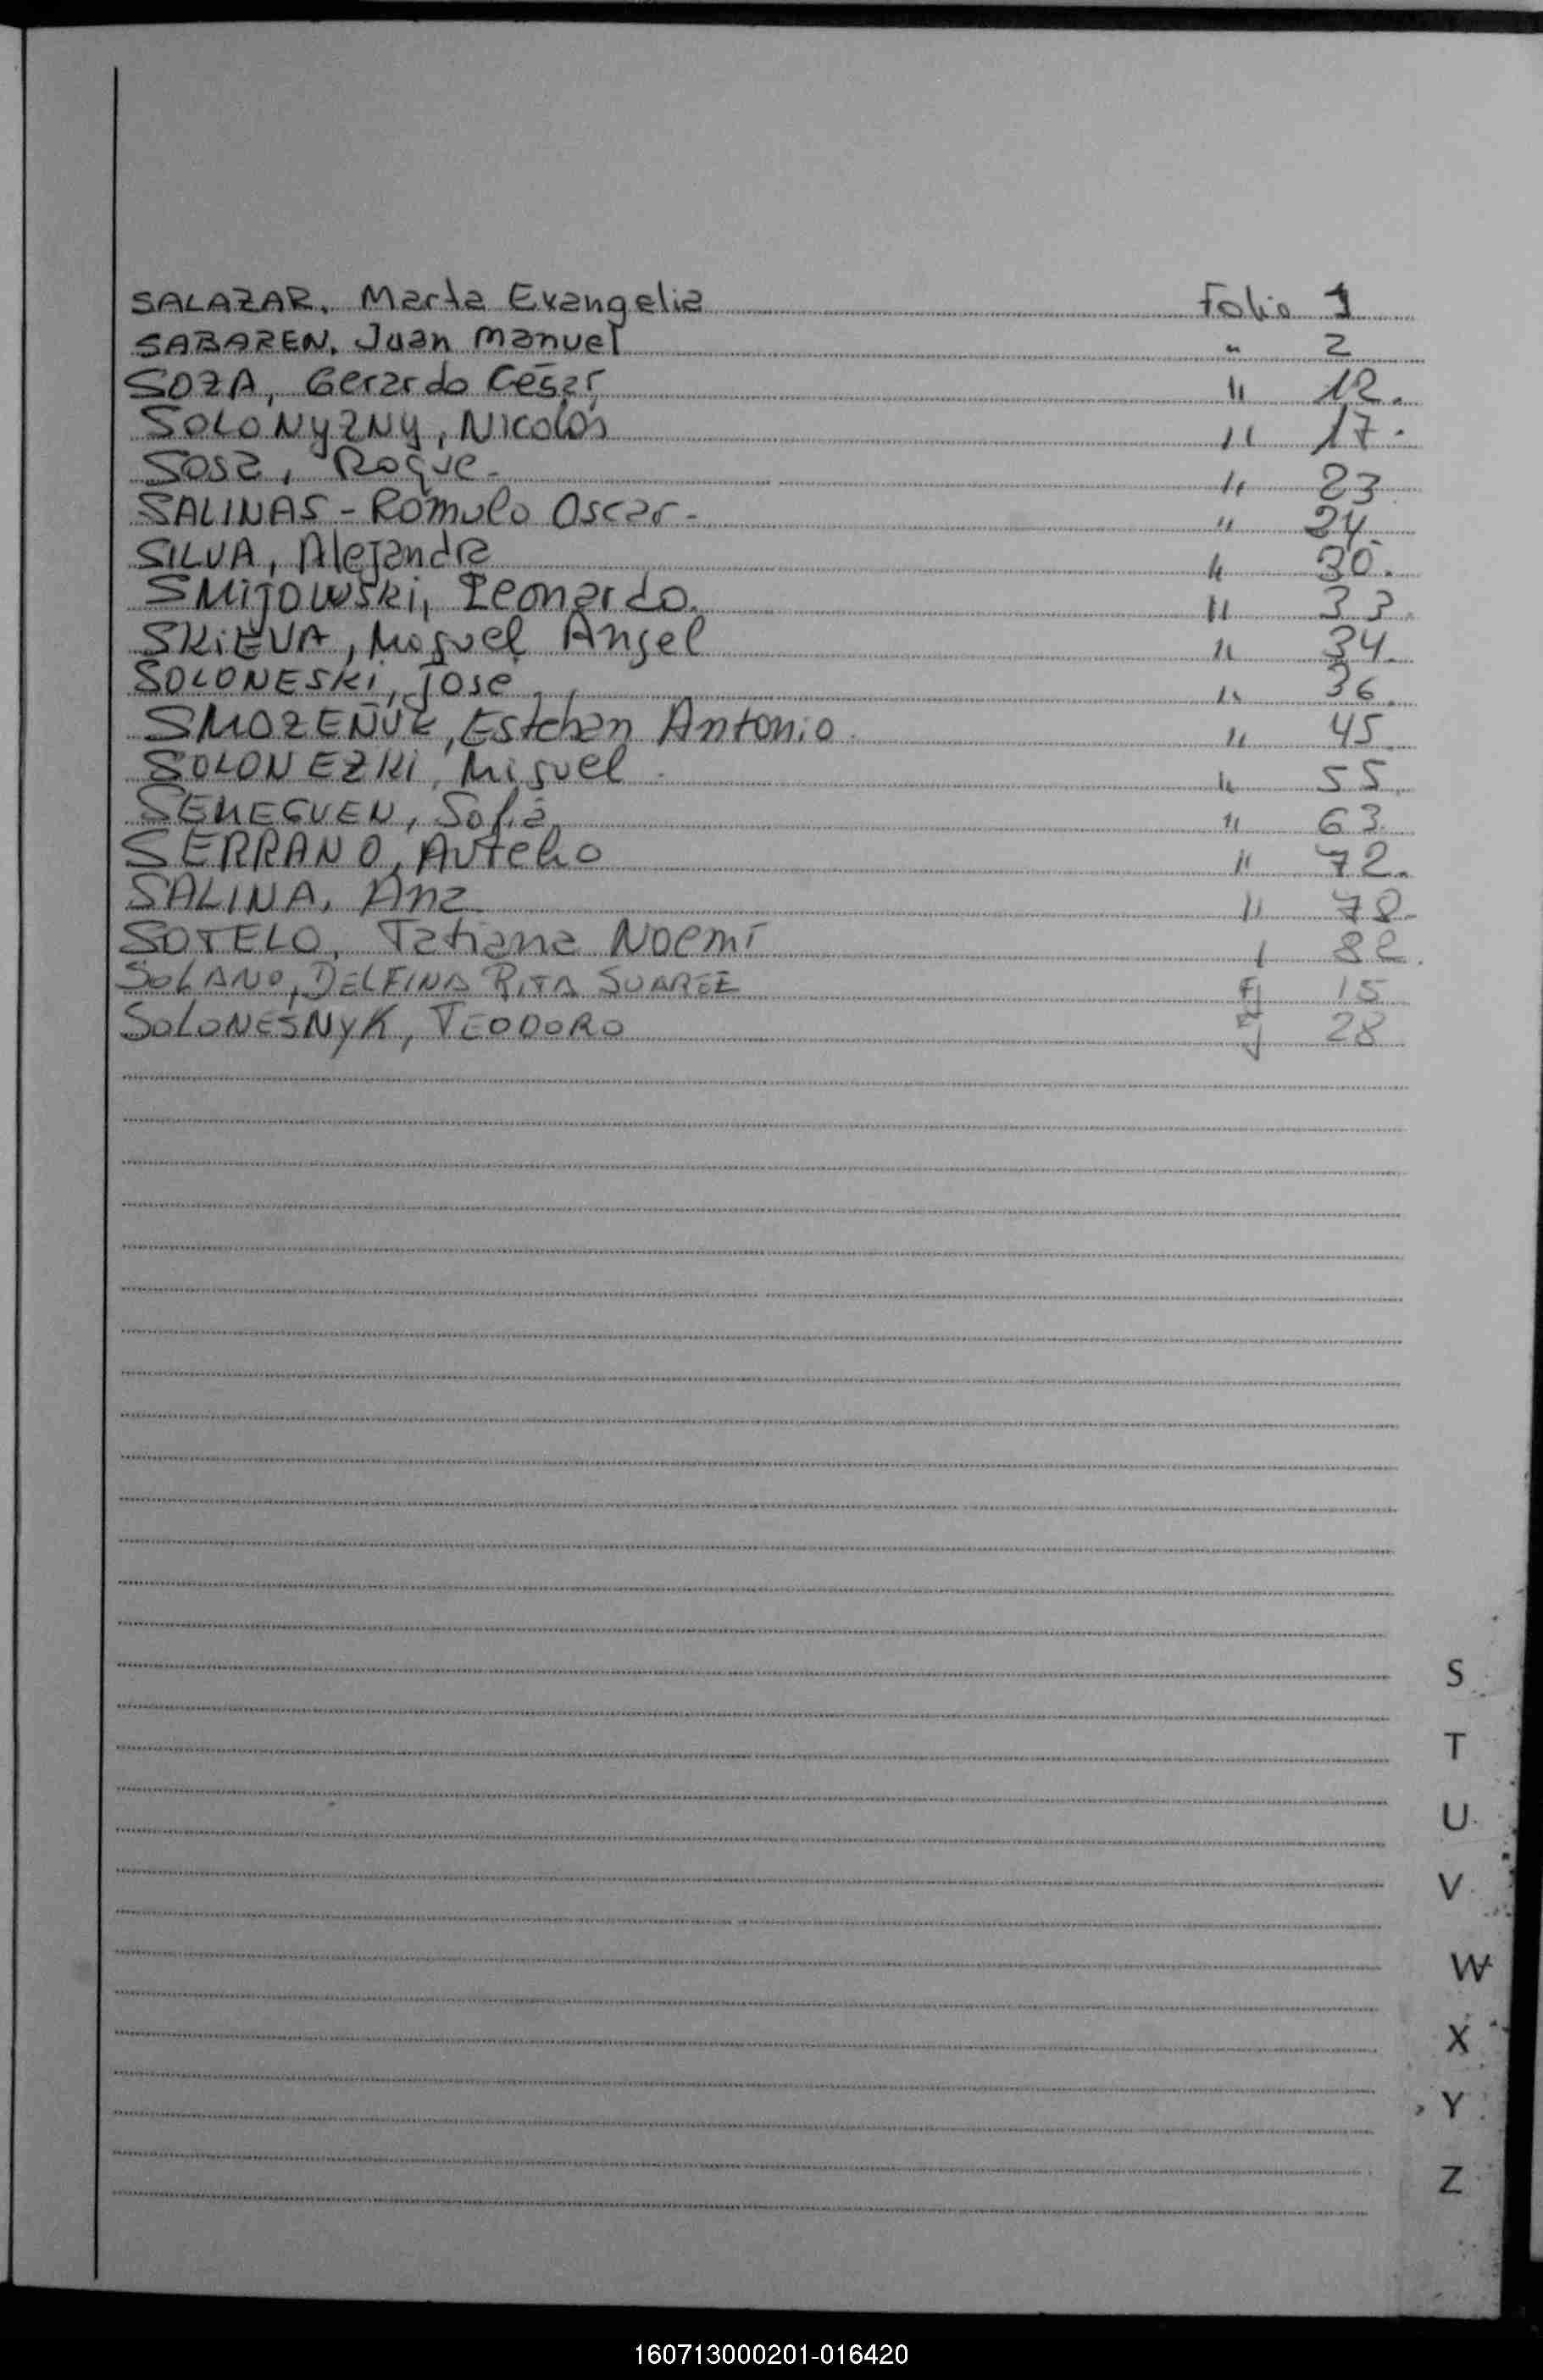 SALAZAR, Marta Evangelia Folio 1
SABAREN, Juan Manuel " 2
SOZA, Gerardo César " 12.
SOLONYZNY, Nicolás " 17.
Sosa, Roque. " 23
SALINAS - Rómulo Oscar. " 24.
SILVA, Alejandra " 30.
SMIJOWSKI, Leonardo. " 33.
SKIEVA, Miguel Angel " 34.
SOLONESKI, José. " 36.
SMOZEÑUK, Esteban Antonio. " 45.
SOLONEZKI, Miguel. " 55.
Sofia " 63.
SERRANO, Aurelio " 72.
SALINA, Ana " 78.
SOTELO, Tatiana Noemí 82.
SOLANO, DELFINA RITA SUAREZ Fj 15
SOLONESNYK, TEODORO Fj 28
S
T
U
V
W
X
Y
Z
160713000201-016420